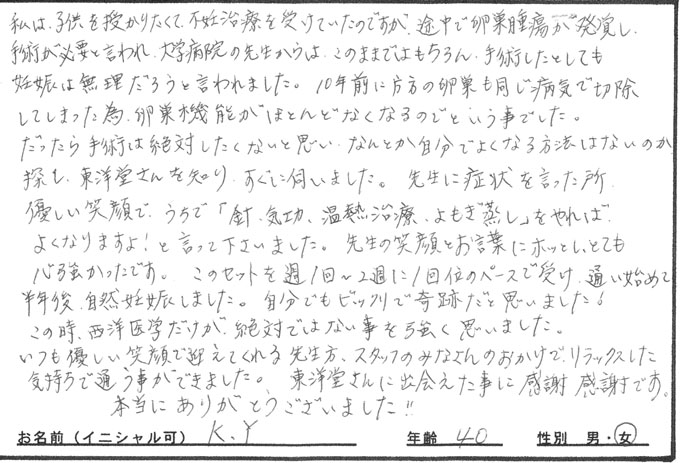 私は、子供を授かりたくて不妊治療を受けていたのですが、途中で卵巣腫瘍が発覚し、
手術が必要と言われ、大学病院の先生からは、このままではもちろん、手術したとしても
妊娠は無理だろうと言われました。10年前に片方の卵巣も同じ病気で切除
してしまった為、卵巣機能がほとんどなくなるのでという事でした。
だったら手術は絶対したくないと思い、なんとか自分でよくなる方法はないのか
探し、東洋堂さんを知り、すぐに伺いました。先生に症状を言った所、
優しい笑顔で、うちで「針、気功、温熱治療、よもぎ蒸し」をやれば、
よくなりますよ!と言って下さいました。先生の笑顔とお言葉にホッとし、とても
心強かったです。このセットを週1回~2週に1回位のペースで受け、通い始めて
半年後、自然妊娠しました。自分でもビックリで奇跡だと思いました!
この時、西洋医学だけが、絶対ではない事を強く思いました。
いつも優しい笑顔で迎えてくれる先生方、スタッフのみなさんのおかげで、リラックスした
気持ちで通う事ができました。東洋堂さんに出会えた事に感謝感謝です。
本当にありがとうございました!!
お名前(イニシャル可) K.Y 年齢 40 性別 男・女